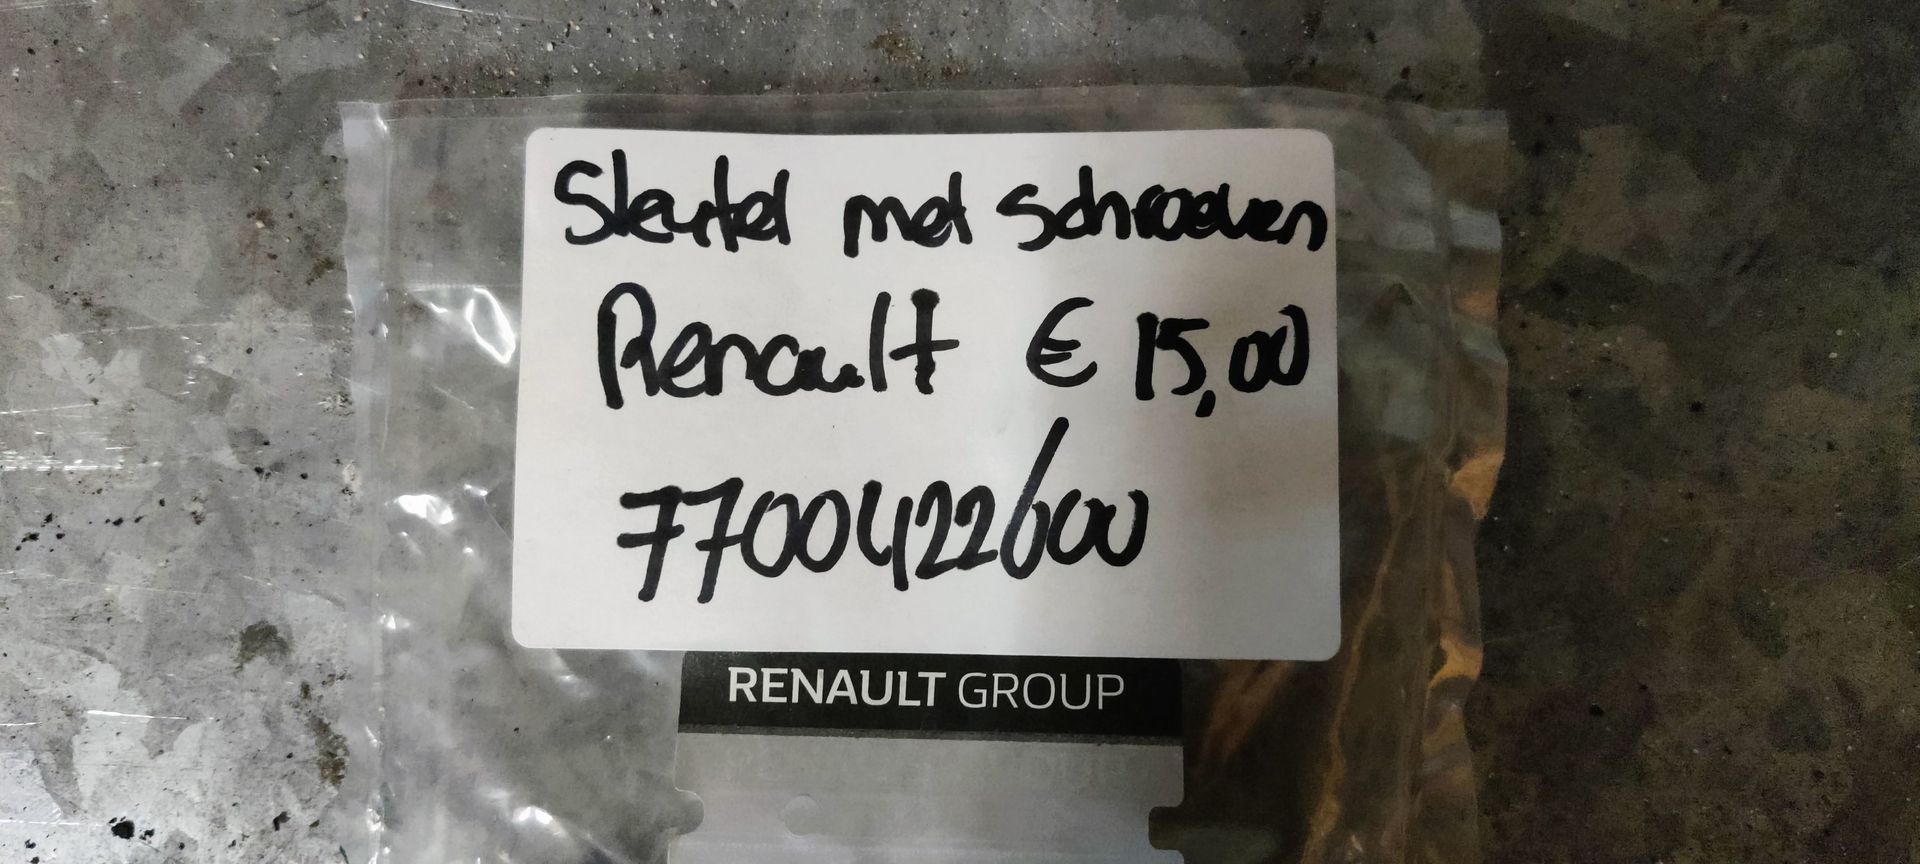 Sleutel met schroeven
Renault € 15,00
7700422600
RENAULT GROUP